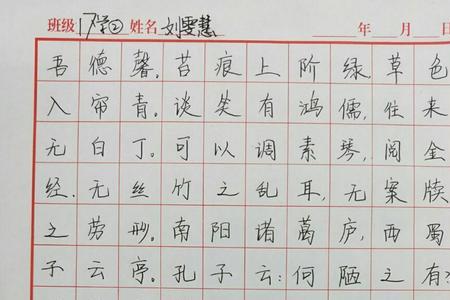 班级 17学② 姓名 刘雯慧 年 月 日
吾德馨。苔痕上阶绿,草色
入帘青。谈笑有鸿儒,往来
无白丁。可以调素琴,阅金
经。无丝竹之乱耳,无案牍
之劳形。南阳诸葛庐,西蜀
子云亭。孔子云:何陋之有?